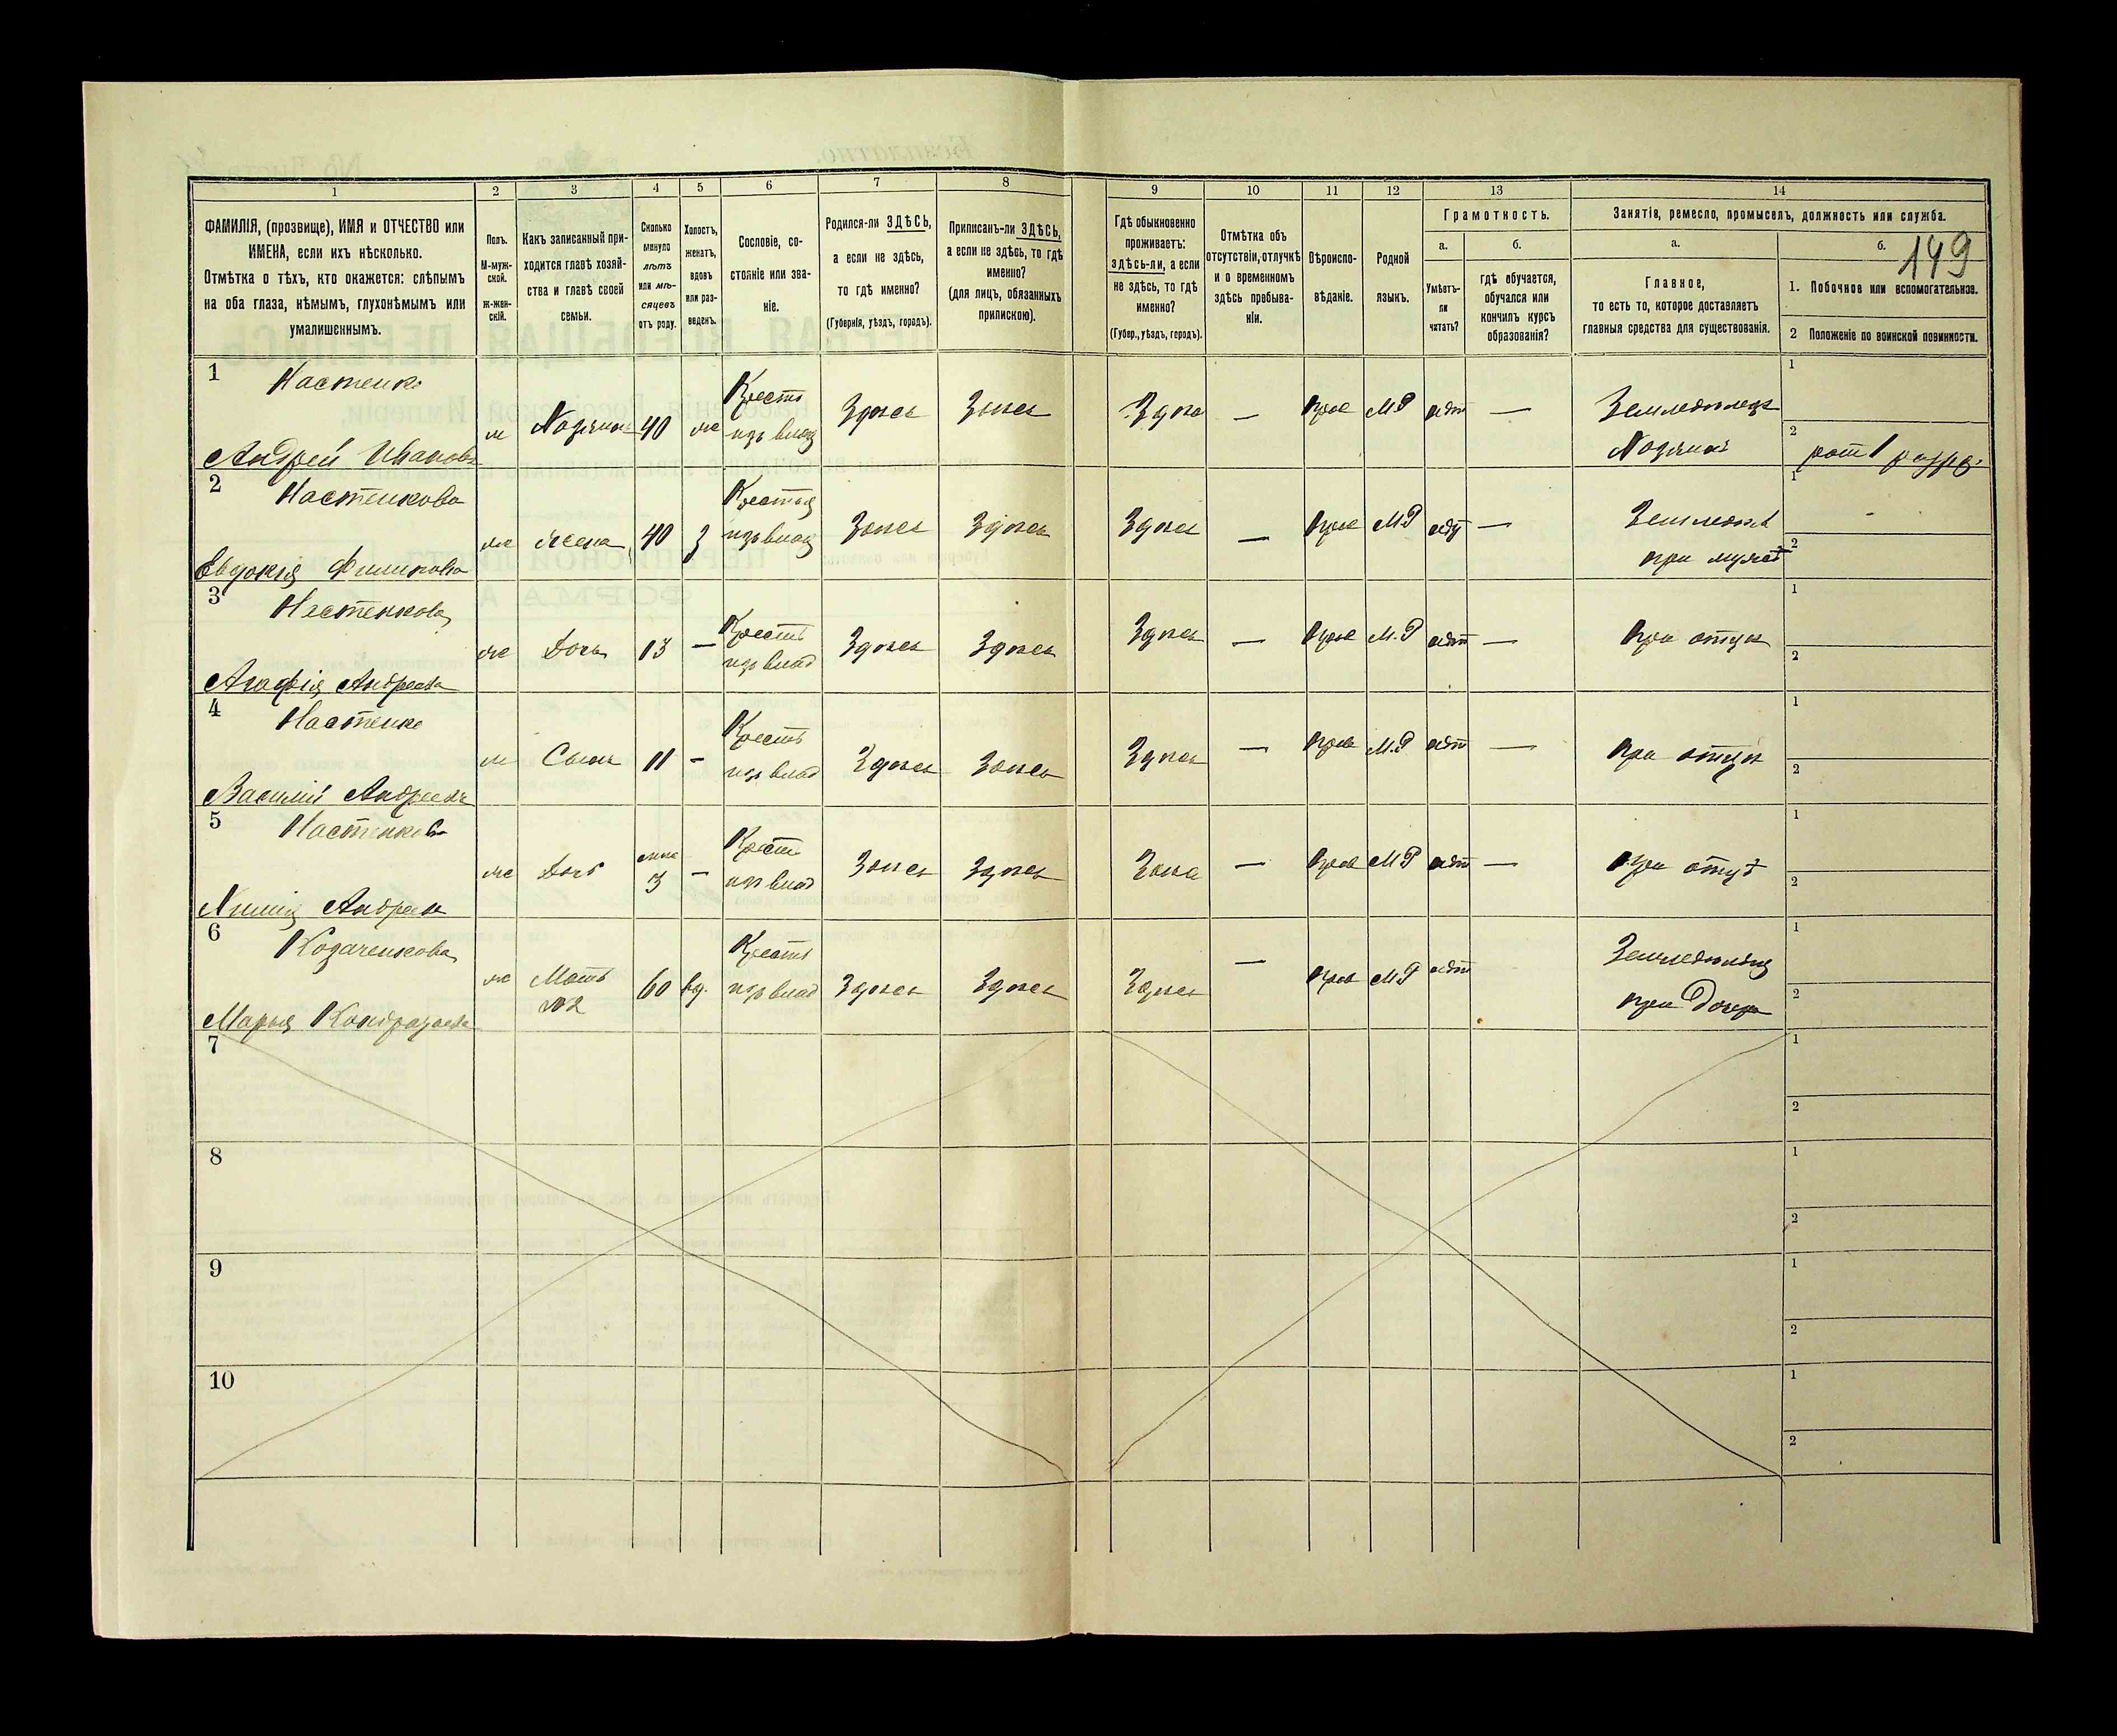 1 2 3 4 5 6 7 8 9 10 11 12 13 14
ФАМИЛІЯ, (прозвище), ИМЯ и ОТЧЕСТВО или
ИМЕНА, если ихъ нѣсколько.
Отмѣтка о тѣхъ, кто окажется: слѣпымъ
на оба глаза, нѣмымъ, глухонѣмымъ или
умалишеннымъ.
Полъ.
М-муж-
ской.
ж-жен-
скій.
Какъ записанный при-
ходится главѣ хозяй-
ства и главѣ своей
семьи.
Сколько
минуло
лѣтъ
или мѣ-
сяцевъ
отъ роду.
Холостъ,
женатъ,
вдовъ
или раз-
веденъ.
Сословіе, со-
стояніе или зва-
ніе.
Родился-ли ЗДѢСЬ,
а если не здѣсь,
то гдѣ именно?
(Губернія, уѣздъ, городъ).
Приписанъ-ли ЗДѢСЬ,
а если не здѣсь, то гдѣ
именно?
(для лицъ, обязанныхъ
припискою).
Гдѣ обыкновенно
проживаетъ:
здѣсь-ли, а если
не здѣсь, то гдѣ
именно?
(Губер., уѣздъ, городъ).
Отмѣтка объ
отсутствіи, отлучкѣ
и о временномъ
здѣсь пребыва-
ніи.
Вѣроиспо-
вѣданіе.
Родной
языкъ.
Грамотность.
а.
Умѣетъ-
ли
читать?
б.
гдѣ обучается,
обучался или
кончилъ курсъ
образованія?
Занятія, ремесло, промыселъ, должность или служба.
а.
Главное,
то есть то, которое доставляетъ
главныя средства для существованія.
б.
149
1. Побочное или вспомогательное.
2 Положеніе по воинской повинности.
1 Настенко
Андрей Ивановъ
м
40
же
Крест
изъ влад
Здѣсь Здѣсь Здѣсь — прав М.Р нѣт —
Земледѣлецъ
1
2
рат 1 разр.
2 Настенкова
Евдокія Филипова
же жена 40 з
Крестья
изъ влад
Здѣсь Здѣсь Здѣсь — прав М.Р нѣт —
Земледѣл
при мужѣ
1
2
3 Настенкова
Агафія Андреева
же Дочь 13 —
Крестъ
изъ влад
Здѣсь Здѣсь Здѣсь — прав М.Р нѣт —
при отцѣ
1
2
4 Настенко
Василій Андреевъ
м Сынъ 11 -
Крестъ
изъ влад
Здѣсь Здѣсь Здѣсь — прав М.Р нѣт —
при отцѣ
1
2
5 Настенкова
Андреева
же Доч 3 —
Крест
изъ влад
Здѣсь Здѣсь Здѣсь — прав М.Р нѣт —
при отцѣ
1
2
6 Козаченкова
Марья
же Мать
№2
60 вд.
Крестъ
изъ влад
Здѣсь Здѣсь Здѣсь — прав М.Р нѣт
при Дочери
1
2
7
1
2
8
1
2
9
1
2
10
1
2